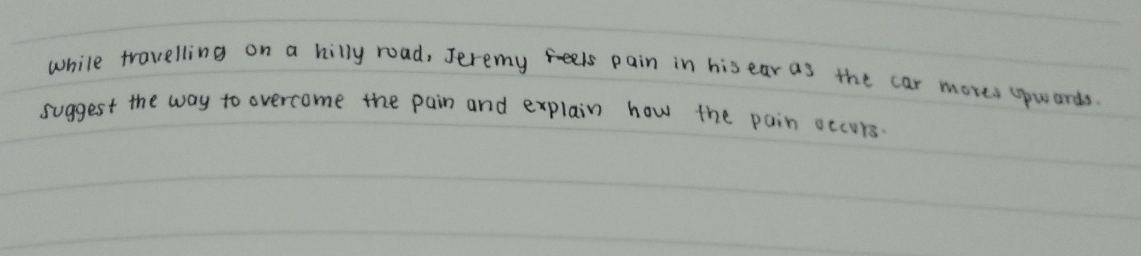 while travelling on a hilly road, Jeremy feels pain in his ear as the car moves upwards.
suggest the way to overcome the pain and explain how the pain occurs.